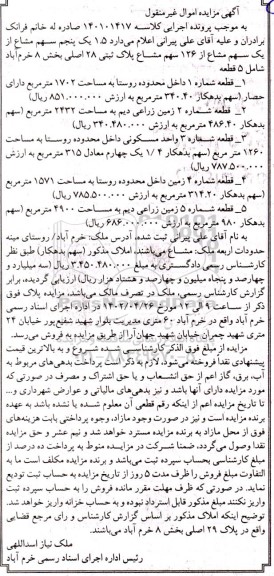 آگهی مزایده اموال غیرمنقول
به موجب پرونده اجرایی کلاسه ۱۴۰۱۰۱۴۱۷ صادره له خانم فرانک
برادران و علیه آقای علی پیرانی اعلام می‌دارد ۱.۵ یک پنجم سهم مشاع از
یک سهم مشاع از ۱۲۶ سهم مشاع پلاک ثبتی ۲۸ اصلی بخش ۸ خرم‌آباد
شامل ۵ قطعه
۱_ قطعه شماره ۱ داخل محدوده روستا به مساحت ۱۷۰۲ مترمربع دارای
حصار (سهم بدهکار ۳۴۰.۴۰ مترمربع به ارزش ۸۵۱.۰۰۰.۰۰۰ ریال)
۲_ قطعه شماره ۲ زمین زراعی دیم به مساحت ۲۴۳۲ مترمربع (سهم
بدهکار ۴۸۶.۴۰ مترمربع به ارزش ۳۴۰.۴۸۰.۰۰۰ ریال)
۳_ قطعه شماره ۳ واحد مسکونی داخل محدوده روستا به مساحت
۱۲۶۰ متر مربع (سهم بدهکار ۱/۴ یک چهارم معادل ۳۱۵ مترمربع به ارزش
۷۸۷.۵۰۰.۰۰۰ ریال)
۴_ قطعه شماره ۴ زمین داخل محدوده روستا به مساحت ۱۵۷۱ مترمربع
(سهم بدهکار ۳۱۴.۲۰ مترمربع به ارزش ۷۸۵.۵۰۰.۰۰۰ ریال)
۵_ قطعه شماره ۵ زمین زراعی دیم به مساحت ۴۹۰۰ مترمربع (سهم
بدهکار ۹۸۰ مترمربع به ارزش ۶۸۶.۰۰۰.۰۰۰ ریال)
به نام آقای علی پیرانی ثبت شده، آدرس ملک: خرم آباد/ روستای مینه
حدودات اربعه ملک: مشاع می‌باشند، املاک مذکور (سهم بدهکار) طبق نظر
کارشناس رسمی دادگستری به مبلغ ۳.۴۵۰.۴۸۰.۰۰۰ ریال (سه میلیارد و
چهارصد و پنجاه میلیون و چهارصد و هشتاد هزار ریال) ارزیابی گردیده، برابر
گزارش کارشناس رسمی، ملک در تصرف مالک می‌باشد، مزایده پلاک فوق
ذکر از ساعت ۹ الی ۱۲ مورخ ۱۴۰۲/۰۴/۲۶ در اداره اجرای اسناد رسمی
خرم آباد واقع در خرم آباد ۶۰ متری مدیریت بلوار شهید شفیع‌پور خیابان ۲۴
متری شهید چمران خیابان شهید جهان‌آرا از طریق مزایده به فروش می‌رسد.
مزایده از مبلغ فوق الذکر کارشناسی شده شروع و به بالاترین قیمت
پیشنهادی نقدا فروخته می‌شود، لازم به ذکر است پرداخت بدهی‌های مربوط به
آب، برق، گاز اعم از حق انشعاب و یا حق اشتراک و مصرف در صورتی که
مورد مزایده دارای آنها باشد و نیز بدهی‌های مالیاتی و عوارض شهرداری و...
تا تاریخ مزایده اعم از اینکه رقم قطعی آن معلوم شده یا نشده باشد به عهده
برنده مزایده است و نیز در صورت وجود مازاد، وجوه پرداختی بابت هزینه‌های
فوق از محل مازاد به برنده مزایده مسترد خواهد شد و نیم عشر و حق مزایده
نقدا وصول می‌گردد، ضمنا شرکت در مزایده منوط به پرداخت ده درصد از
مبلغ کارشناسی بحساب سپرده ثبت می‌باشد و برنده مزایده مکلف است ما به
التفاوت مبلغ فروش را ظرف مدت ۵ روز از تاریخ مزایده به حساب ثبت تودیع
نماید. در صورتی که ظرف مهلت مقرر مانده فروش را به حساب سپرده ثبت
واریز نکند مبلغ مذکور قابل استرداد نبوده و به حساب خزانه واریز خواهد شد.
توضیح اینکه املاک مذکور بر اساس گزارش کارشناس و رای مرجع قضایی
واقع در پلاک ۲۹ اصلی بخش ۸ خرم آباد می‌باشند.
ملک نیاز اسداللهی
رئیس اداره اجرای اسناد رسمی خرم آباد